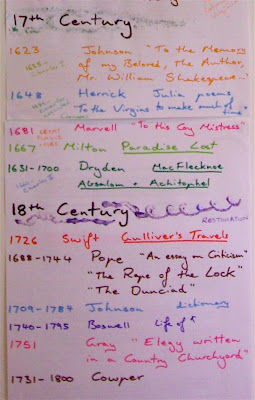 17th Century
1623 Johnson "To the Memory
of my Beloved, The Author,
Mr. William Shakespeare..."
1648 Herrick Julia poems
"To the Virgins to make much of time"
1681 Marvell "To this Coy Mistress"
1667 Milton Paradise Lost
1631-1700 Dryden MacFlecknoe
Absalom + Achitophel
18th Century
RESTORATION
1726 Swift Gulliver's Travels
1688-1744 Pope "An essay on Criticism"
"The Rape of the Lock"
"The Dunciad"
1709-1784 Johnson dictionary
1740-1795 Boswell Life of ↑
1751 Gray "Elegy written
in a Country Churchyard"
1731-1800 Cowper